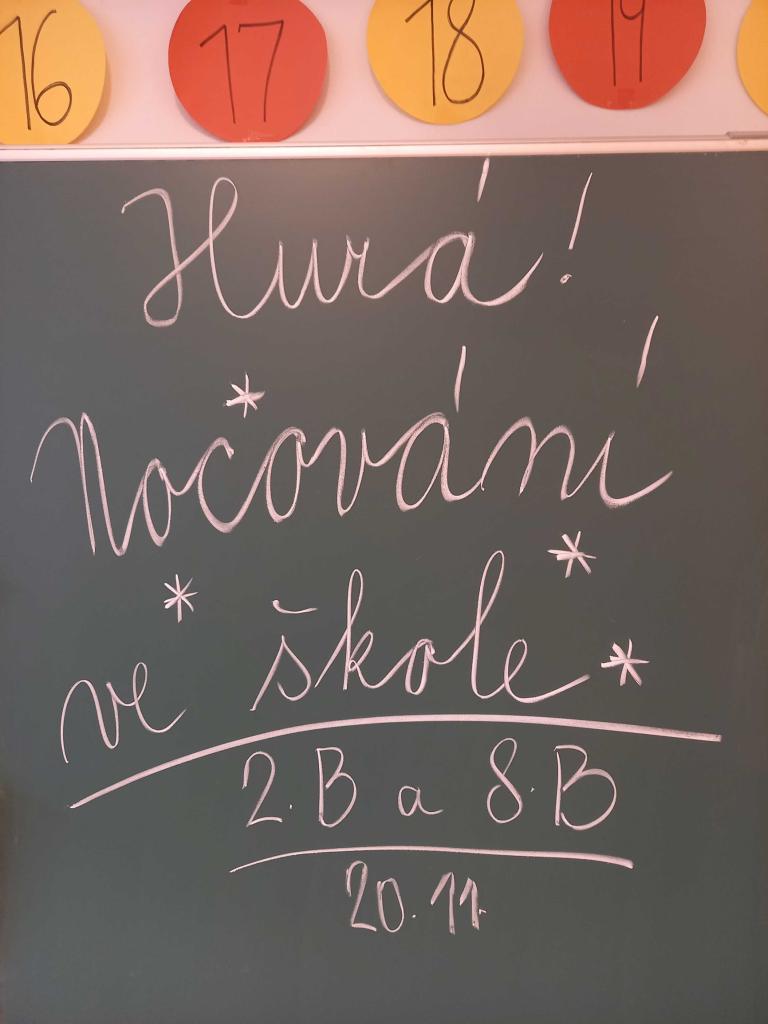 16 17 18 19
Hurá!
Nočování
ve škole
2.B a 8.B
20.11.